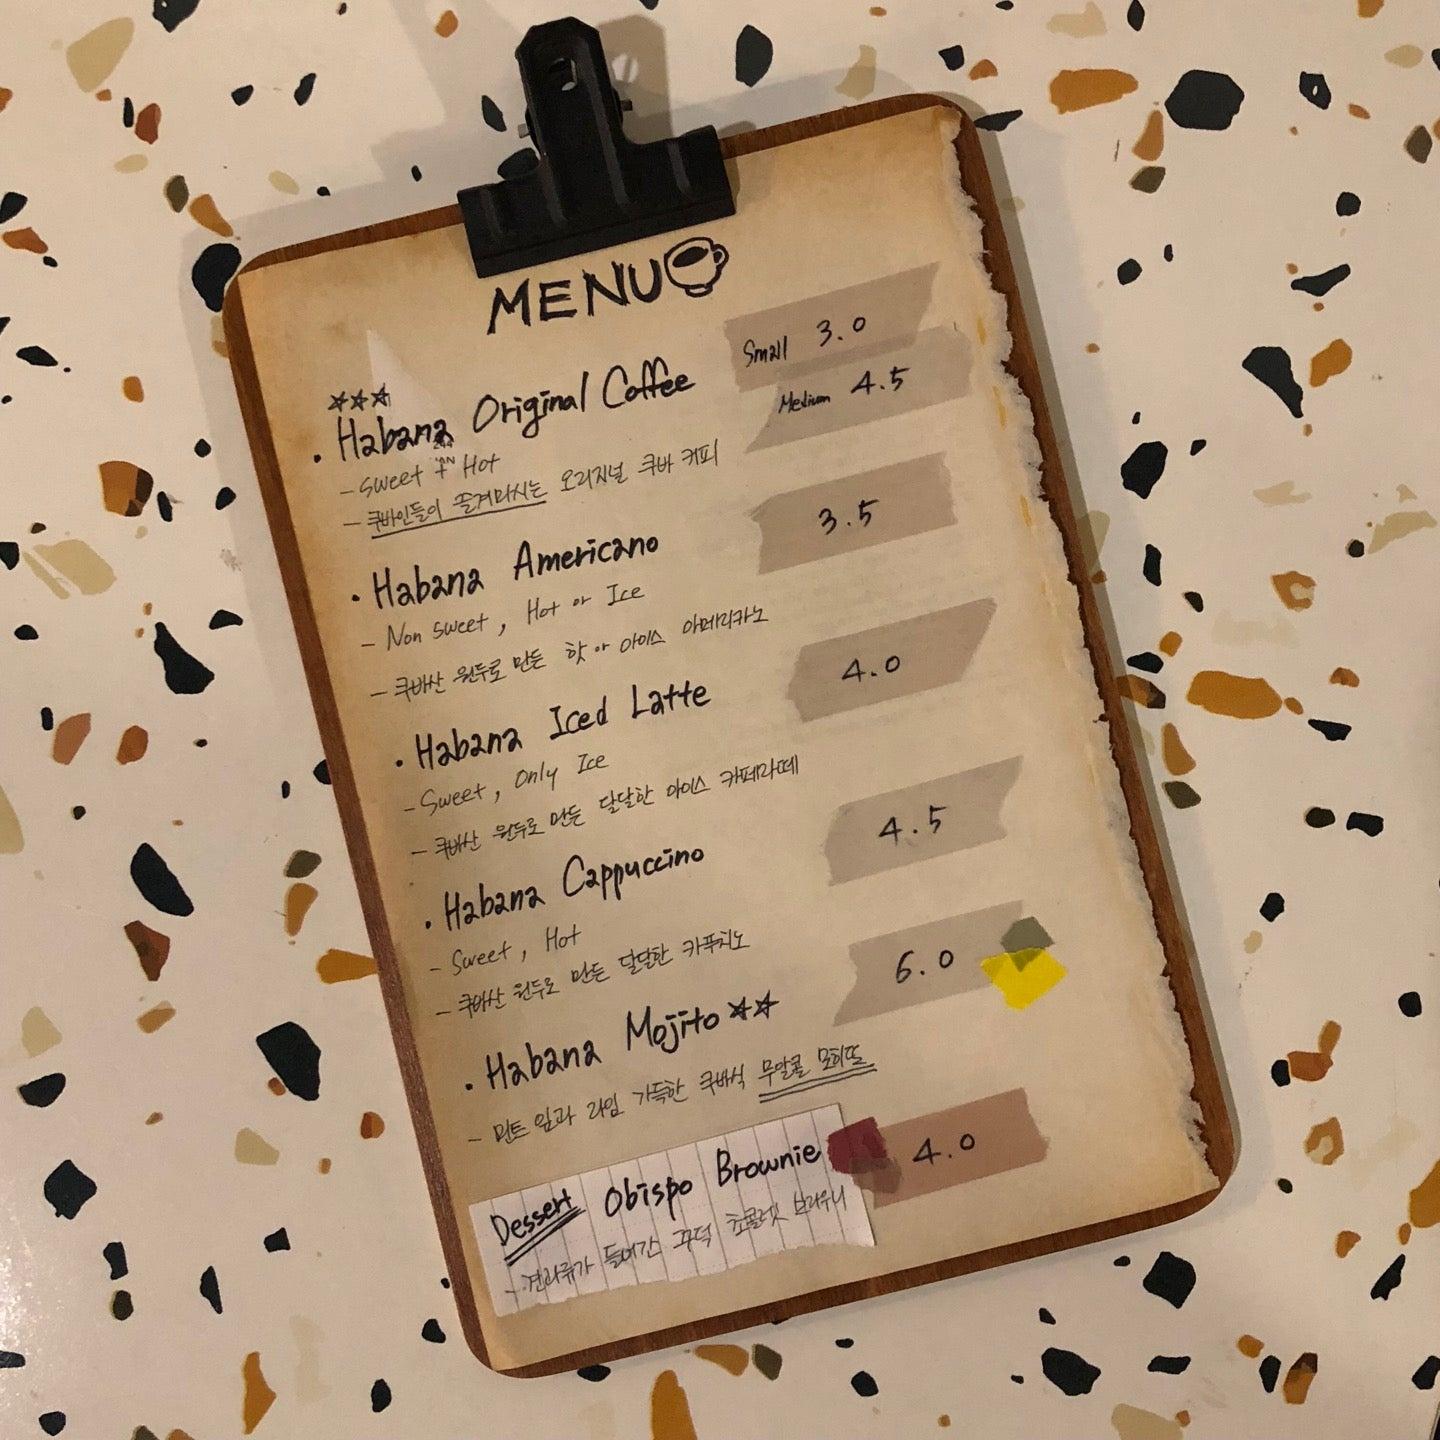 MENU
Habana Original Coffee
Small 3.0
Medium 4.5
- Sweet + Hot
- 쿠바인들이 즐겨마시는 오리지널 쿠바 커피
• Habana Americano
3.5
- Non sweet, Hot or Ice
- 쿠바산 원두로 만든 핫 or 아이스 아메리카노
• Habana Iced Latte
4.0
- Sweet, Only Ice
- 쿠바산 원두로 만든 달달한 아이스 카페라떼
• Habana Cappuccino
4.5
- Sweet, Hot
- 쿠바산 원두로 만든 달달한 카푸치노
• Habana Mojito
6.0
- 민트 잎과 라임 가득한 쿠바식 무알콜 모히또
Dessert Obispo Brownie
4.0
- 견과류가 들어간 꾸덕 초콜렛 브라우니